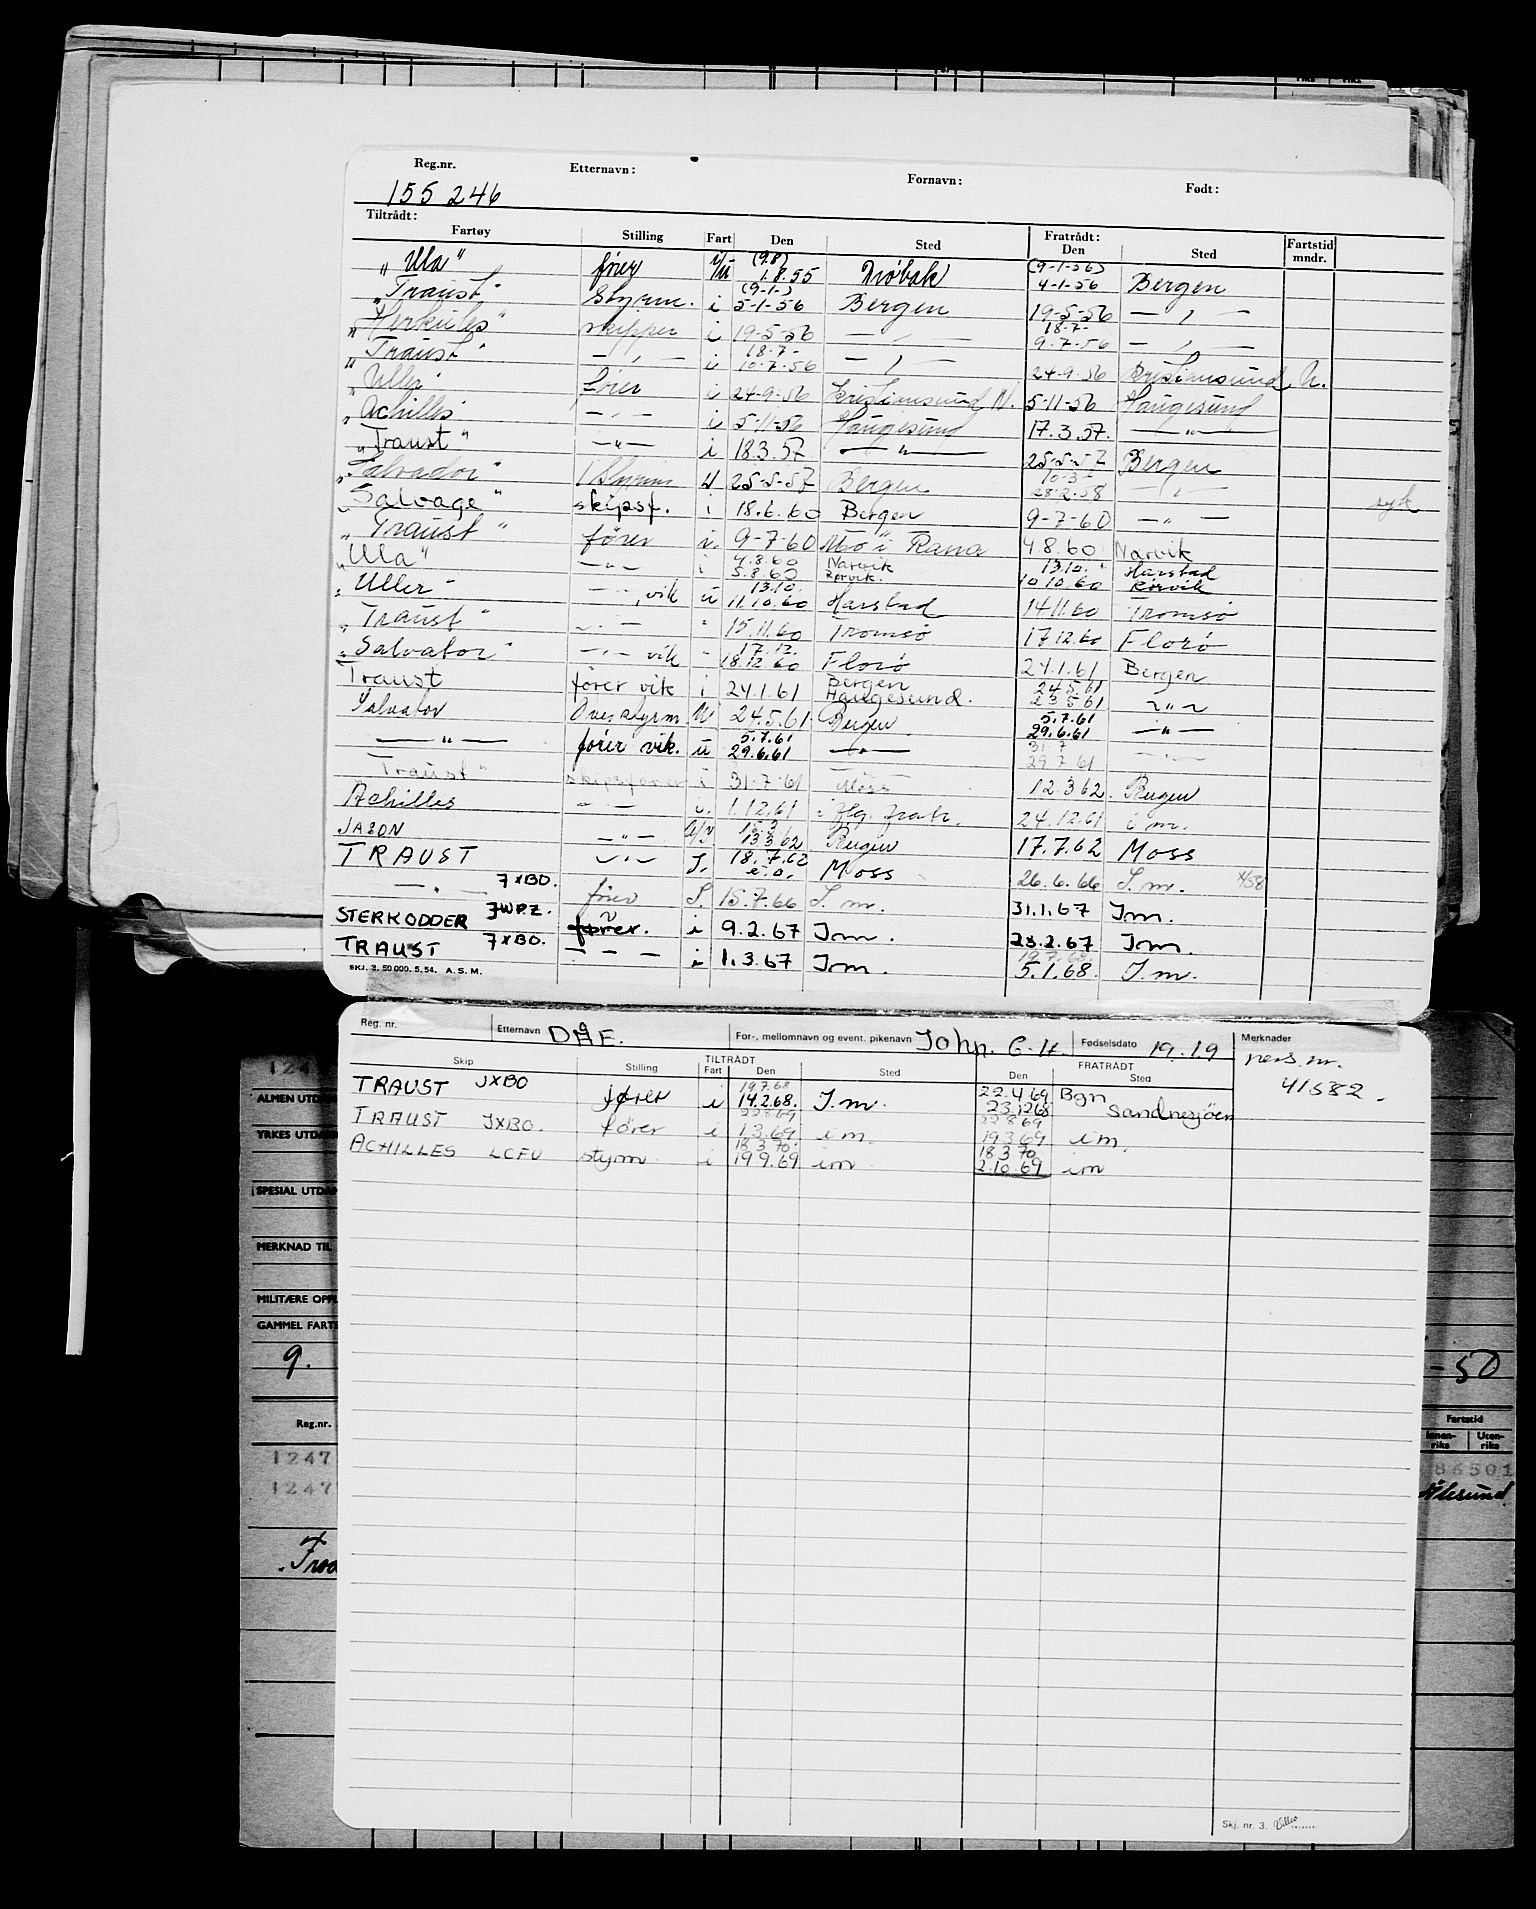 Reg.nr. Etternavn: Fornavn: Født:
155246
Tiltrådt: Fratrådt:
Fartøy Stilling Fart Den Sted Den Sted Fartstid mndr.
„Ula" fører (9.8) 1.8.55 Drøbak (9-1-56) 4-1-56 Bergen
„Traust" Styrm. i (9-1-) 5-1-56 Bergen 19-5-56 — , —
„Herkules" skipper i 19-5-56 — , — 18.7- 9-7-56 — , —
„Traust" — , — i 18.7- 10-7-56 — , — 24-9-56 Kristiansund N.
„Uller" fører i 24-9-56 Kristiansund N. 5-11-56 Haugesund
„Achilles" — , — i 5-11-56 Haugesund 17.3.57. — " —
„Traust" — " — i 18.3.57 — " — 25-5-57 Bergen
„Salvador" 1 Styrm U 25-5-57 Bergen 10-3- 28.2.58 — , — syk
„Salvage" skipsf. i 18.6.60 Bergen 9-7-60 — " —
„Traust" fører i. 9-7-60 Mo i Rana 4.8.60 Narvik
„Ula" — " — i 4.8.60 5.8.60 Narvik Rørvik. 13.10. 10 10.60 Harstad Rørvik
„Uller" — , vik u 13.10. 11.10.60 Harstad 14.11.60 Tromsø
„Traust" — " — " 15.11.60 Tromsø 17.12.60 Florø
„Salvator" — , — vik " 17.12. 18.12 60 Florø 24.1.61 Bergen
Traust fører vik i 24.1.61 Bergen Haugesund. 24.5.61 23 5 61 — " —
Salvator Overstyrm U 24.5.61 Bergen 5.7.61 29.6.61 — " —
— " — fører vik. u 5.7.61 29.6.61 — " — 31 7 29 7 61 — " —
Traust" skipsfører i 31.7.61 Moss 12.3 62. Bergen
Achilles " — i. 1.12.61 i flg. fratr. 24.12.61 i m.
JASON — " — 13 3 62 Bergen 17.7.62 Moss
TRAUST — " — I. 18.7.62 e.o. Moss 26.6.66 I.m.
— " — 7XBO. fører I. 15.7.66 I.m. 31.1.67 Im.
STERKODDER JWPZ. fører. i 9.2.67 Im. 23.2.67 Im.
TRAUST 7XBO. - - - i 1.3.67 Im. 5.1.68. I.m.
SKJ. 3. 50 000. 5. 54. A. S. M.
Reg. nr. Etternavn DÅE. For-, mellomnavn og event. pikenavn John. C.H. Fødselsdato 19.19 Merknader
pens.nr.
41582.
Skip TILTRÅDT FRATRÅDT
Stilling Fart Den Sted Den Sted
TRAUST JXBO fører i 19.7.68 14.2.68. I.m. 22.4 69 23.12 68 Bgn Sandnesjøen
TRAUST JXBO. fører i 22 8 69 1.3.69 i m. 22 8 69 19 3 69 i m.
ACHILLES LCFU styrm i 18 3 70 19 9.69 im 18 3 70 2.10.69 im
Skj. nr. 3.
124
ALMEN UTDAN
YRKES UTDAN
SPESIAL UTDAN
MERKNAD TIL
MILITÆRE OPPL
GAMMEL FARTS
9.
-50
Reg.nr.
Fartstid
Innen-riks Uten-riks
1247
86501
1247
Ålesund